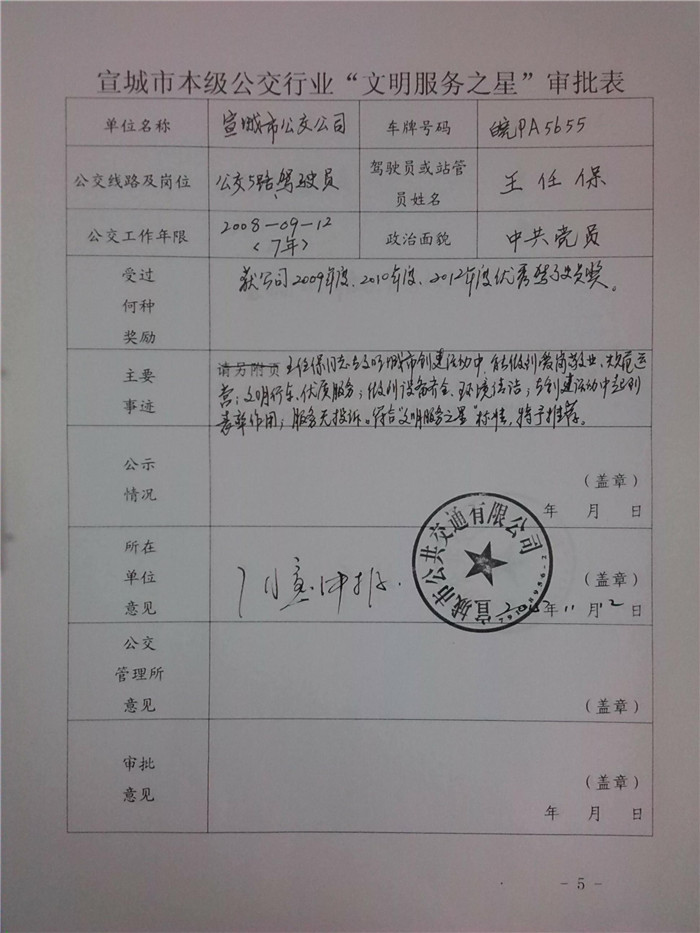 宣城市本级公交行业“文明服务之星”审批表
单位名称 宣城市公交公司 车牌号码 皖PA5655
公交线路及岗位 公交5路驾驶员 驾驶员或站管员姓名 王任保
公交工作年限 2008-09-12 (7年) 政治面貌 中共党员
受过何种奖励 获公司2009年度、2010年度、2012年度优秀驾驶员奖。
主要事迹 请另附页 王任保同志在文明城市创建活动中,能做到爱岗敬业、规范运
营;文明行车、优质服务;做到设备齐全、环境清洁;在创建活动中起到
表率作用;服务无投诉。符合“文明服务之星”标准,特予推荐。
公示情况 (盖章)
年 月 日
所在单位意见 同意申报. (盖章)
年11月12日
宣城市公共交通有限公司
公交管理所意见 (盖章)
审批意见 (盖章)
年 月 日
- 5 -